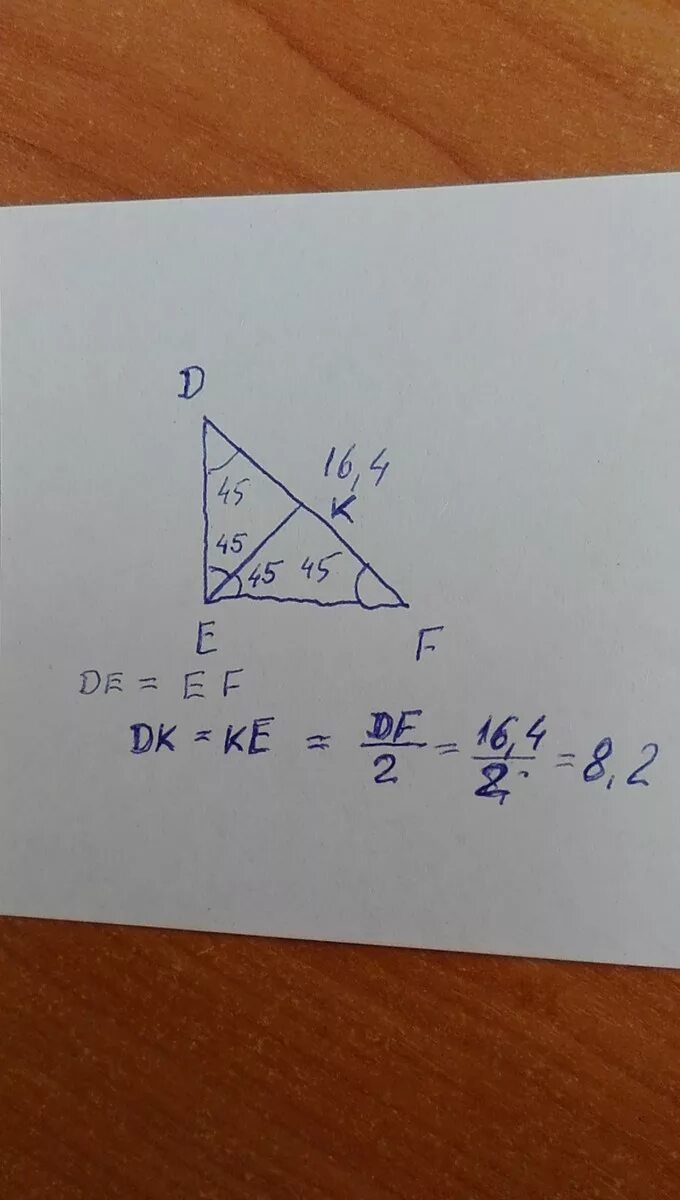 D
16,4
K
45
45
45
45
E
F
DE = EF
DK = KE = DF/2 = 16,4/2 = 8,2